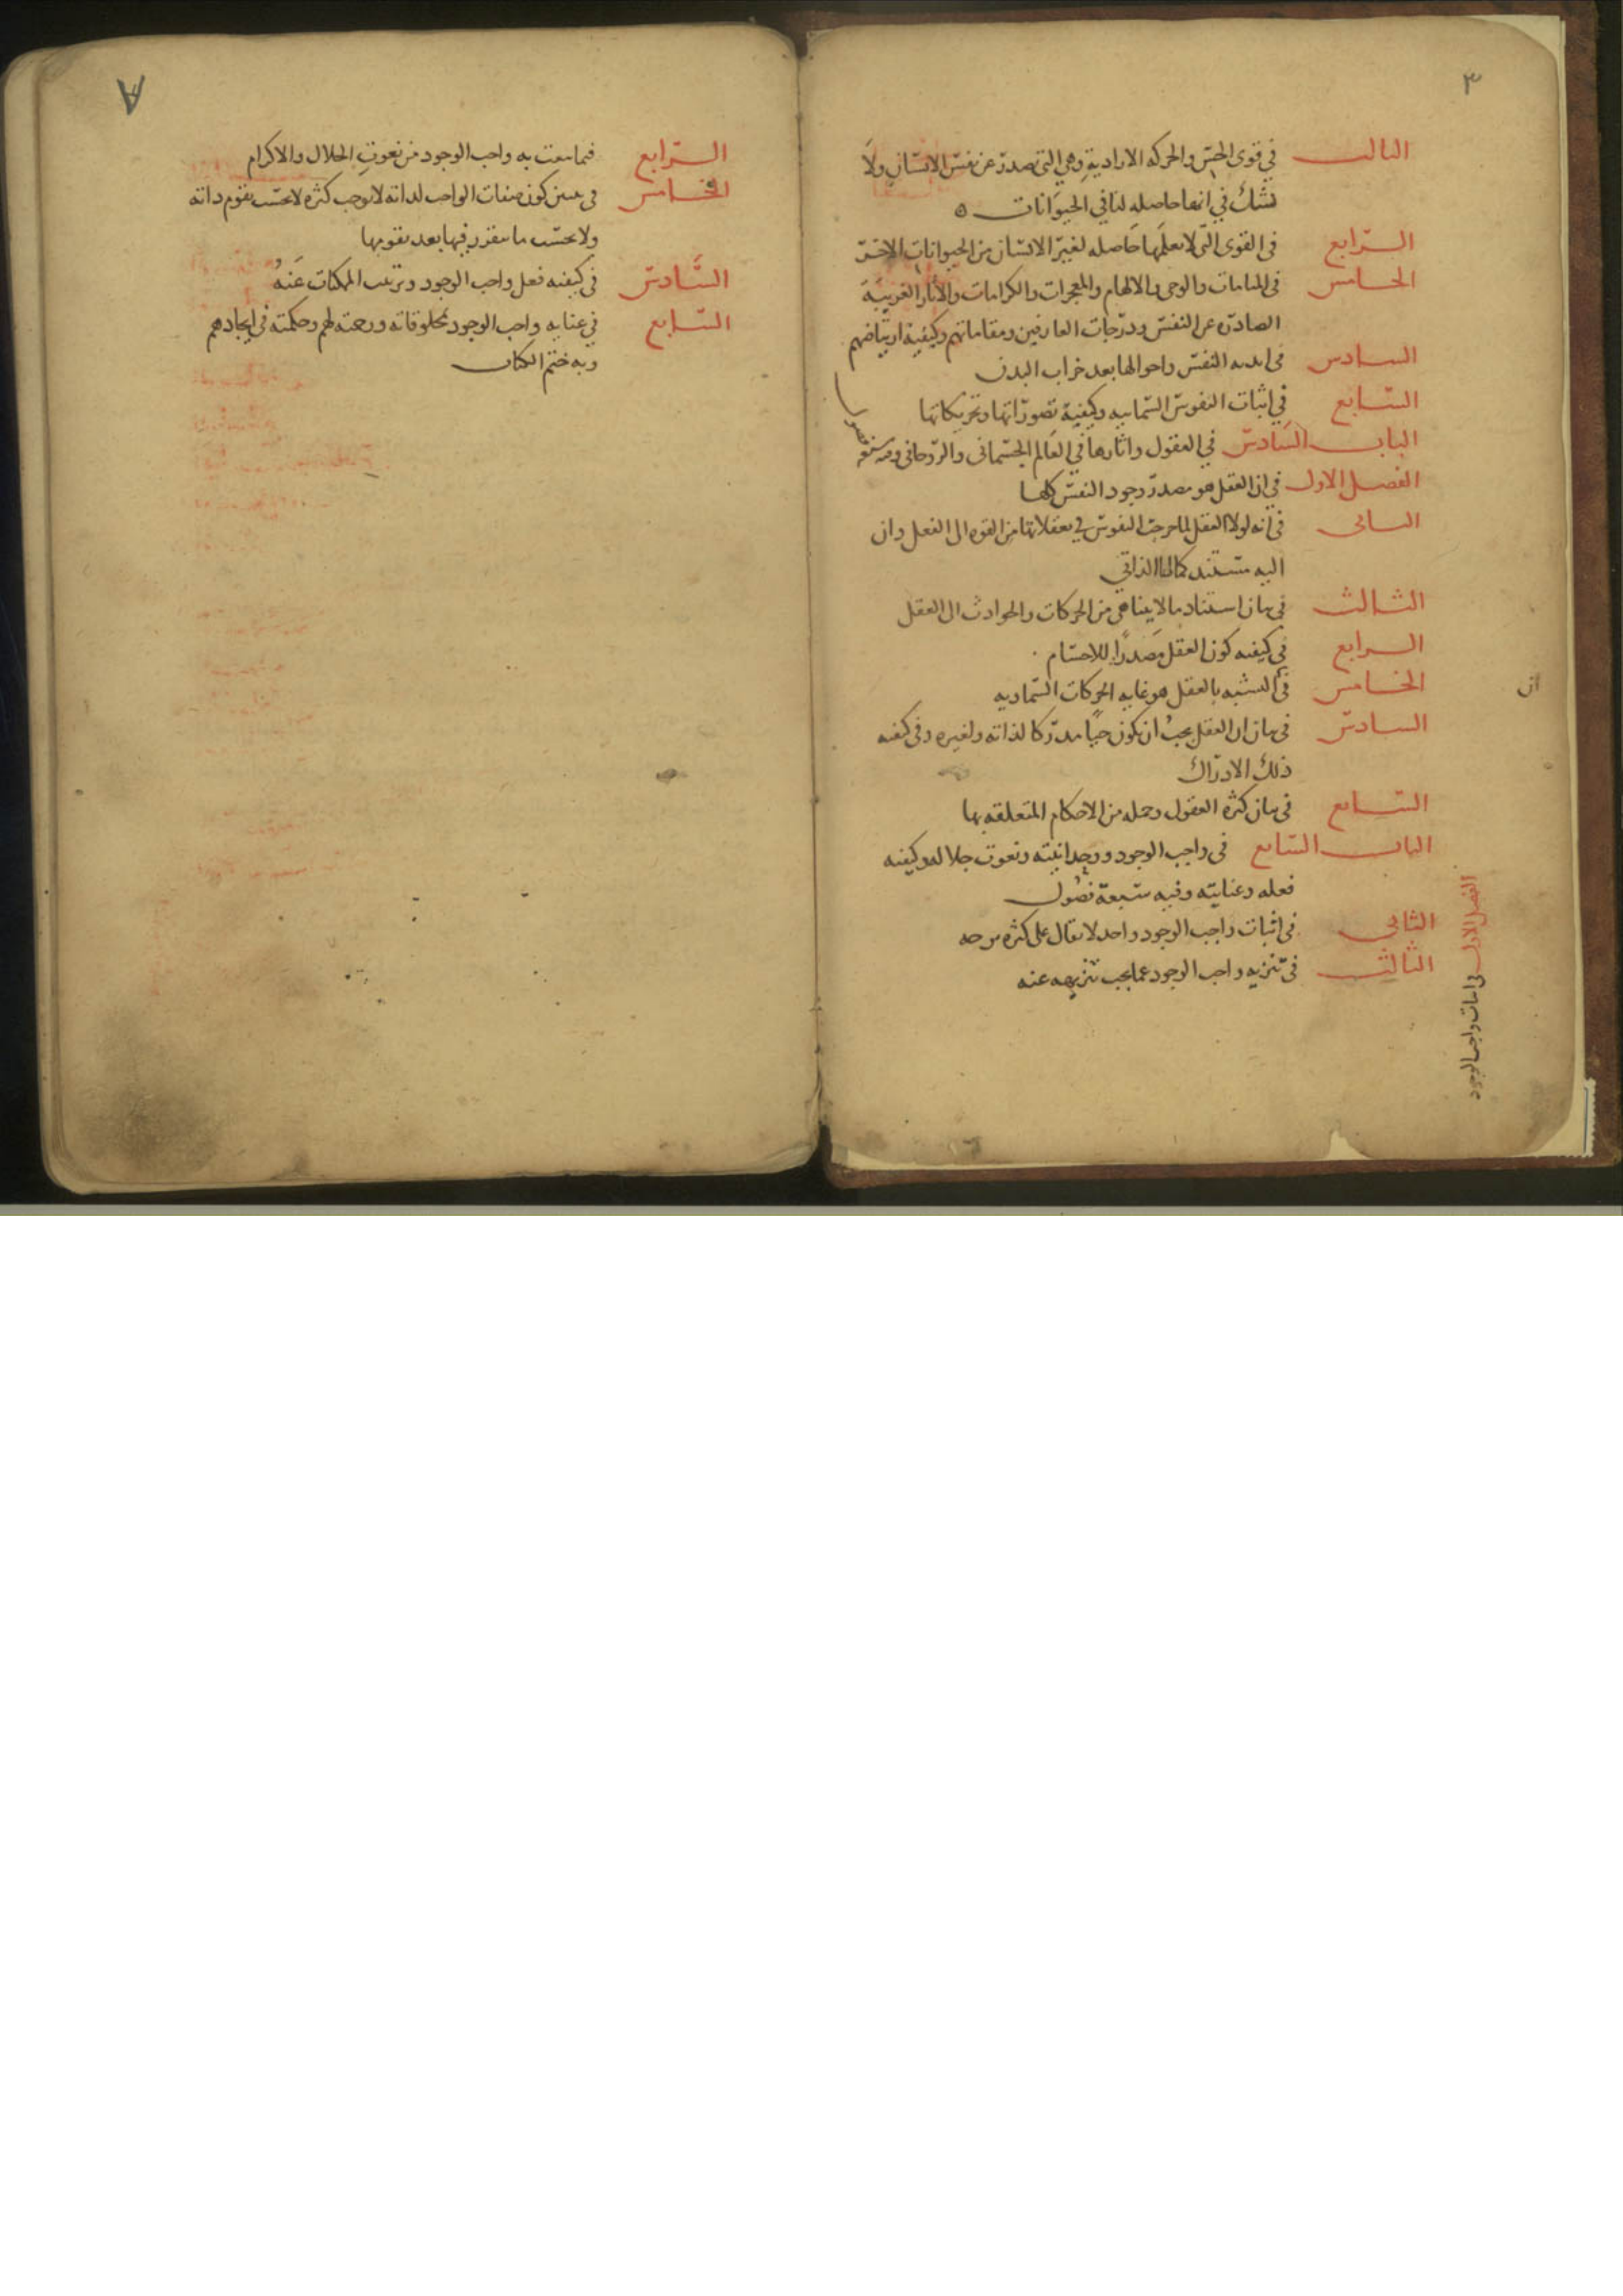 ٣
الثالث في قوى الحس والحركه الارادية وهي التي تصدر عن نفس الانسان ولا
نشك في انها حاصله لنا في الحيوانات ه
الرابع في القوى التي لا نعلمها حاصله لغير الانسان من الحيوانات الاخر
الخامس في المنامات والوحى والالهام والمعجزات والكرامات والآثار الغريبة
الصادره عن النفس ودرجات العارفين ومقاماتهم وكيفية ارتياضهم
السادس في ابديه النفس واحوالها بعد خراب البدن
السابع في اثبات النفوس السماييه وكيفية تصوراتها وتحريكاتها
الباب السادس في العقول واثارها في العالم الجسمانى والروحانى وفيه سبعه فصول
الفصل الاول في ان العقل هو مصدر وجود النفس كلها
الثانى في انه لولا العقل لما خرجت النفوس في تعقلاتها من القوه الى الفعل وان
اليه مستند كمالها الذاتي
الثالث في بيان استناد ما لا يتناهى من الحركات والحوادث الى العقل
الرابع في كيفيه كون العقل مصدرا للاجسام
الخامس في ان التشبه بالعقل هو غايه الحركات السماويه
السادس في بيان ان العقل يجب ان يكون حيا مدركا لذاته ولغيره وفى كيفيه
ذلك الادراك
السابع في بيان كثره العقول وجمله من الاحكام المتعلقه بها
الباب السابع في واجب الوجود ووحدانيته ونعوت جلاله وكيفيه
فعله وعنايته وفيه سبعة فصول
الفصل الاول في اثبات واجب الوجود
الثانى في اثبات واجب الوجود واحد لا يقال على كثره بوجه
الثالث في تنزيه واجب الوجود عما يجب تنزيهه عنه
٨
الرابع فيما ينعت به واجب الوجود من نعوت الجلال والاكرام
الخامس في تبيين كون صفات الواجب لذاته لا توجب كثره لا بحسب تقوم ذاته
ولا بحسب ما يتقرر فيها بعد تقومها
السادس في كيفيه فعل واجب الوجود وترتيب الممكنات عنه
السابع في عنايه واجب الوجود بمخلوقاته ورحمته لهم وحكمته في ايجادهم
وبه ختم الكتاب